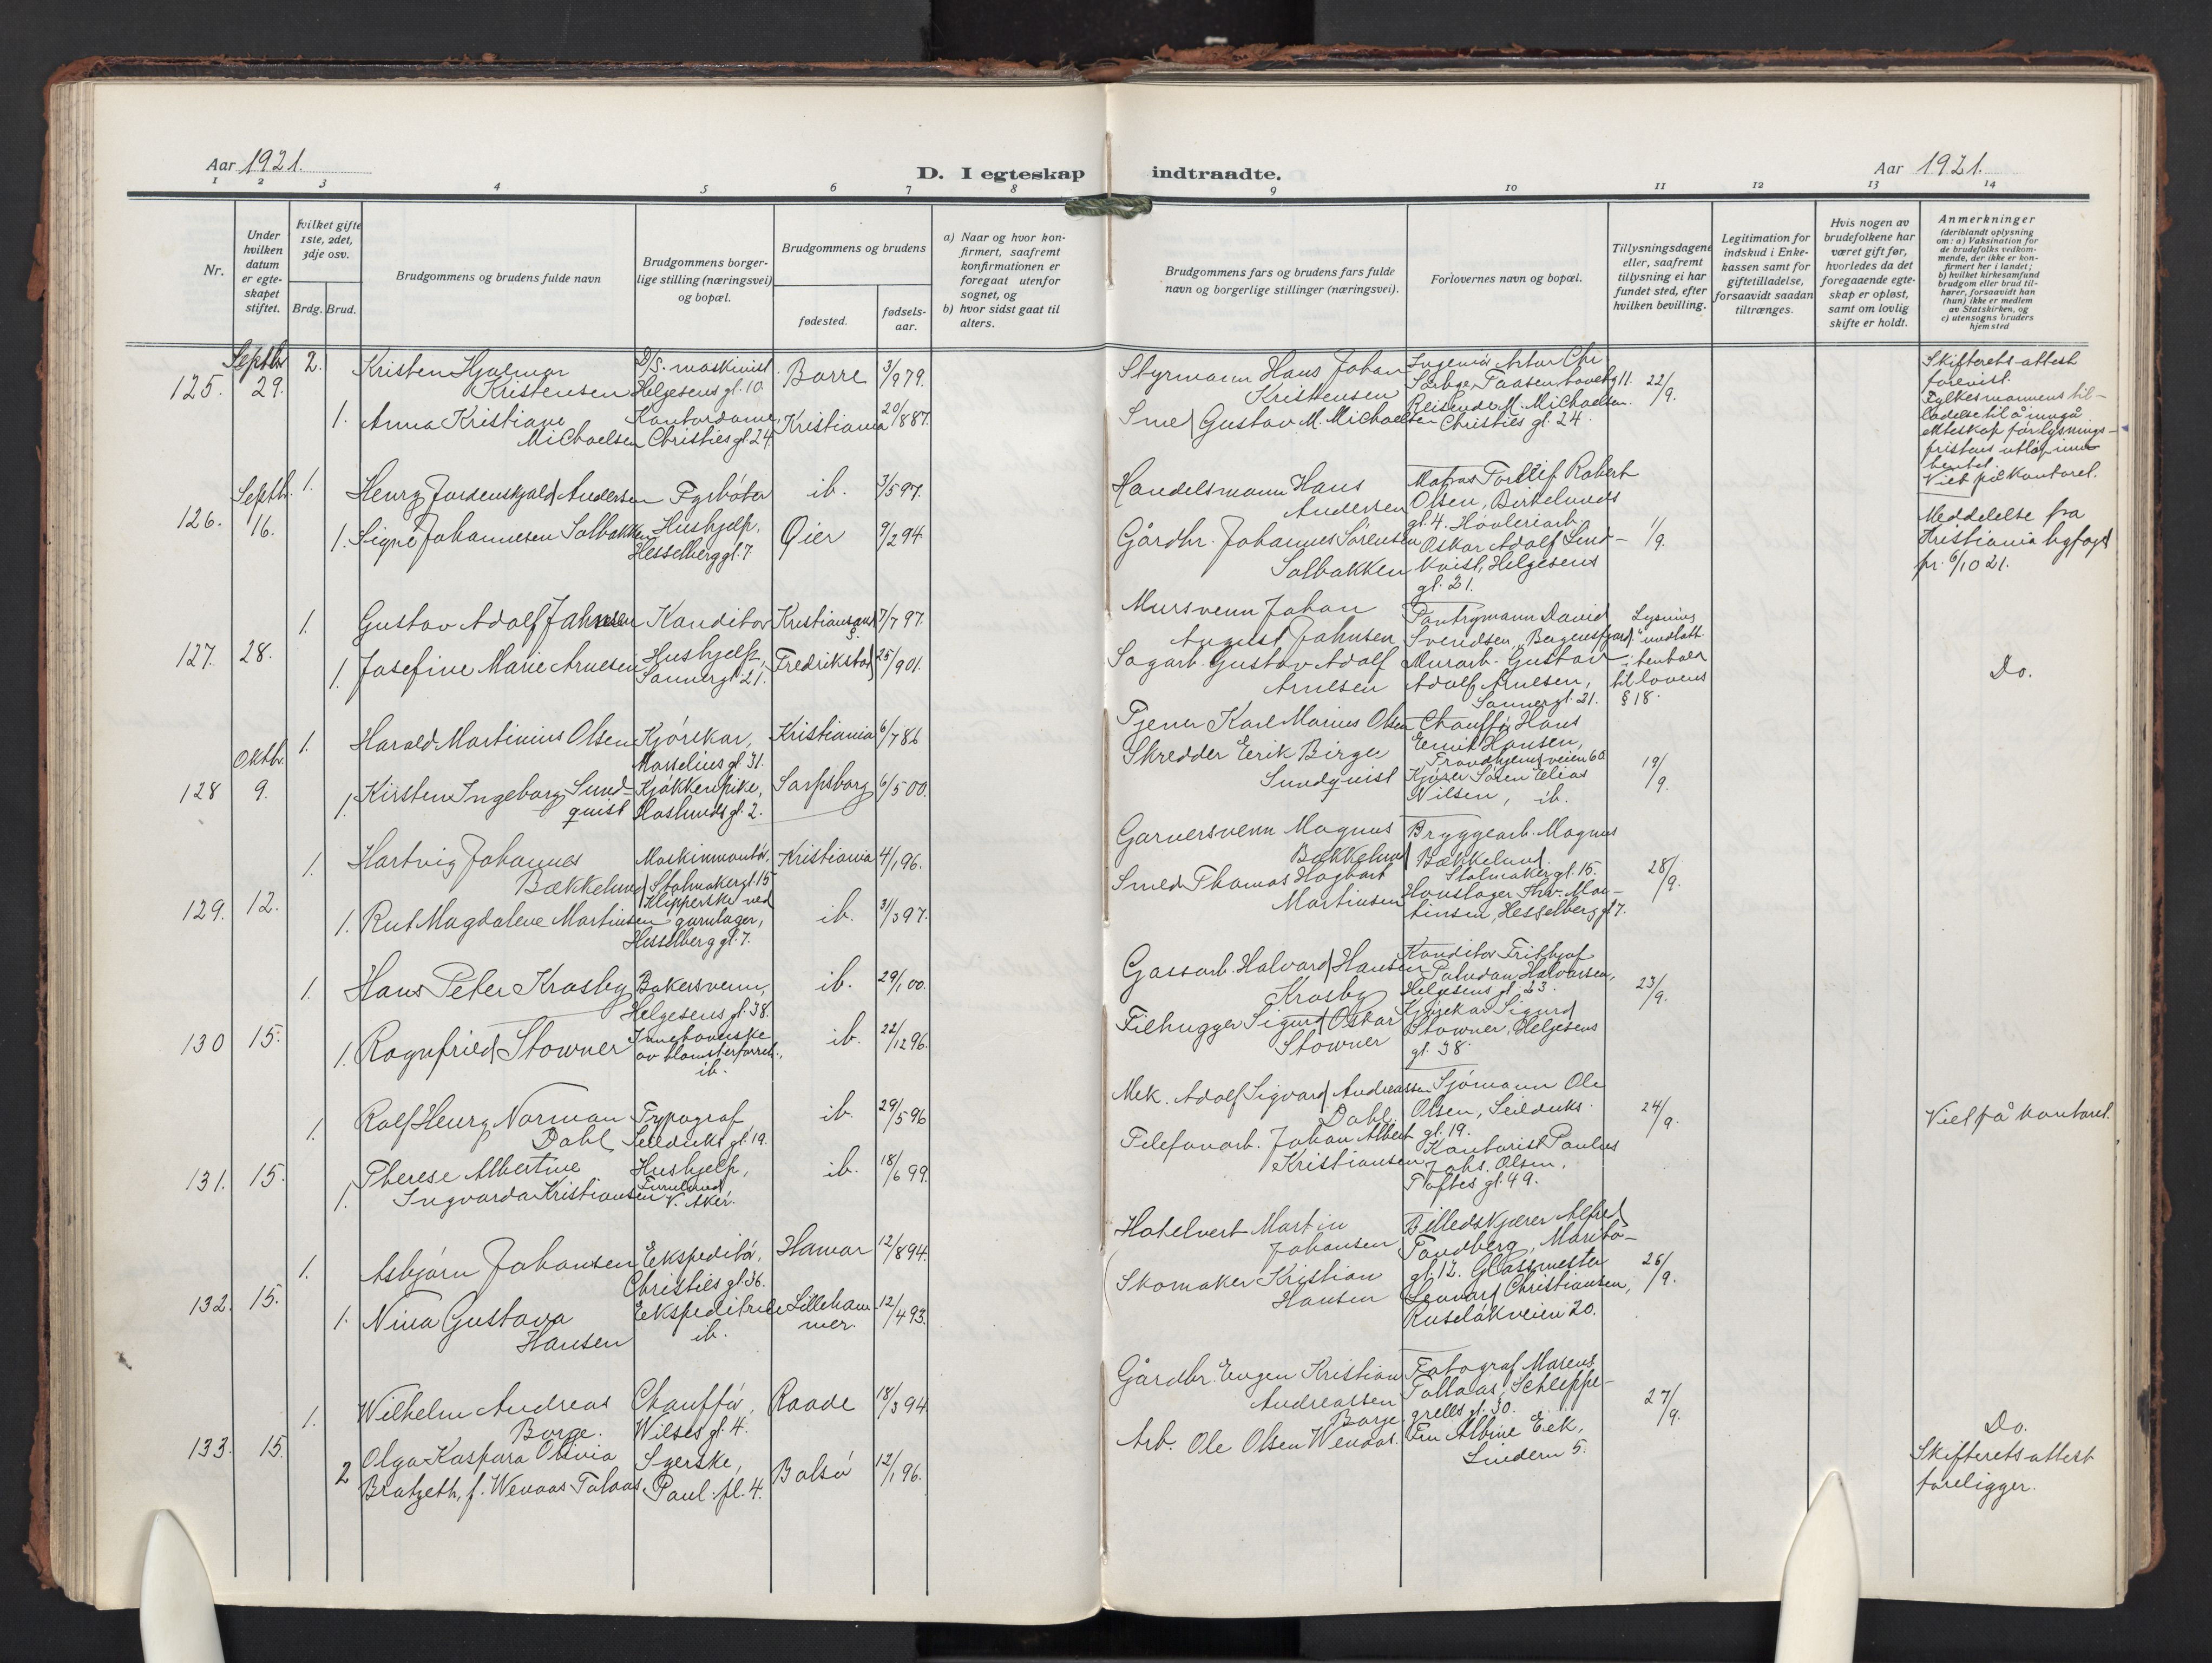 Aar 1921.
D. I egteskap indtraadte.
Aar 1921.
1 2 3 4 5 6 7 8 9 10 11 12 13 14
Nr.
Under hvilken datum er egteskapet stiftet.
Hvilket gifte 1ste, 2det, 3dje osv.
Brdg. Brud.
Brudgommens og brudens fulde navn
Brudgommens borgerlige stilling (næringsvei) og bopæl.
Brudgommens og brudens
fødested.
fødselsaar.
a) Naar og hvor konfirmert, saafremt konfirmationen er foregaat utenfor sognet, og
b) hvor sidst gaat til alters.
Brudgommens fars og brudens fars fulde navn og borgerlige stillinger (næringsvei).
Forlovernes navn og bopæl.
Tillysningsdagene eller, saafremt tillysning ei har fundet sted, efter hvilken bevilling.
Legitimation for indskud i Enkekassen samt for giftetilladelse, forsaavidt saadan tiltrænges.
Hvis nogen av brudefolkene har været gift før, hvorledes da det foregaaende egteskap er opløst, samt om lovlig skifte er holdt.
Anmerkninger
(deriblandt oplysning om: a) Vaksination for de brudefolks vedkommende, der ikke er konfirmert her i landet; b) hvilket kirkesamfund brudgom eller brud tilhører, forsaavidt han (hun) ikke er medlem av Statskirken, og c) utensogns bruders hjemsted
125. Septbr. 29.
2. Kristen Hjalmar Kristensen
D/S. maskinist Helgesens gl. 10.
Borre 3/9 79.
1. Anna Kristiane Michaelsen
Kontordame, Christies gl. 24
Kristiania 20/8 87.
Styrmann Hans Johan Kristensen
Smed Gustav M. Michaelsen
Ingeniør Artur Chr.
Reisende M. Michaelsen. Christies gl. 24.
22/9.
Skifterets attest forevist.
Fylkesmannens tilladelse til å inngå ekteskap før lysningsfristens utløp innhentet.
Viet på kontoret.
126. Septb. 16.
1. Henry Jordenskjold Andersen
Fyrbøter
ib. 3/5 97.
1. Signe Johannesen Solbakken
Hushjelp, Hesselberg gl. 7
Øier 9/2 94.
Handelsmann Hans Andersen
Gårdbr. Johannes Sørensen Solbakken
Matros Tortlif Robert Olsen, Birkelunds gl. 4. Høvleriarb. Oskar Adolf Lindkvist, Helgesens gl. 21.
1/9.
Meddelelse fra Kristiania byfogd pr. 6/10 21.
127. 28.
1. Gustav Adolf Jahnsen
Konditor
Kristiansand S. 7/7 97.
1. Josefine Marie Arnesen
Hushjelp, Sannergl. 21.
Fredrikstad 25/9 01.
Mursvenn Johan August Jahnsen
Sagarb. Gustav Adolf Arnesen
Pantrymann David Svendsen, "Bergensfjord".
Murarb. Gustav Adolf Arnesen, Sannergl. 21.
Lysning undlatt i henhold til lovens § 18.
Do.
128 Oktbr. 9.
1. Harald Martinius Olsen
Kjørekar, Marselius gl. 31.
Kristiania 6/7 86
1. Kirsten Ingeborg Sundquist
Kjøkkenpike, Haslunds gl. 2.
Sarpsborg 6/5 00.
Tjener Karl Marius Olsen
Skredder Erik Birger Sundquist
Chauffør Hans Ernst Hansen, Trondhjemsveien 60
Kjører Søren Elias Nilsen, ib.
19/9.
129. 12.
1. Hartvig Johannes Bækkelund
Maskinmontør, Stolmakergl. 15
Kristiania 4/1 96.
1. Rut Magdalene Martinsen
Klipperske ved garnlager, Hesselberg gl. 7.
ib. 31/3 97.
Garversvenn Magnus Bækkelund
Smed Thomas Hagbart Martinsen
Bryggearb. Magnus Bækkelund. Stolmaker gl. 15.
Martinsen, Hesselberg gl. 7.
28/9.
130 15.
1. Hans Peter Krosby
Bakersvenn, Helgesens gl. 38.
ib. 29/1 00.
1. Ragnfried Stowner
Innehaverske av blomsterforretn., ib.
ib. 22/12 96.
Gassarb. Halvard Hansen Krosby
Filhugger Sigurd Oskar Stowner
Konditor Frithjof Paludan Halvorsen, Helgesens gl. 23.
Kjørekar Sigurd Stowner, Helgesens gl. 38.
23/9.
131. 15.
1. Rolf Henry Norman Dahl
Typograf Seilduks gl. 19.
ib. 29/5 96
1. Therese Albertine Ingvarda Kristiansen
Hushjelp, Furulund V. Aker.
ib. 18/6 99.
Mek. Adolf Sigvard Andreassen Dahl.
Telefonarb. Johan Albert Kristiansen
Sjømann Ole Olsen, Seilduks gl. 19.
Kontorist Paulus Johs. Olsen, Toftes gl. 49.
24/9.
Viet på kontoret.
132. 15.
1. Asbjørn Johansen
Ekspeditør, Christies gl. 36.
Hamar 12/8 94.
1. Nina Gustava Hansen
Ekspeditrice ib.
Lillehammer. 12/4 93.
Hotelvert Martin Johansen
Skomaker Kristian Hansen
Billedskjærer Alfred Tandberg, Maribogl. 12.
Glassmester Lennard Christiansen, Ruseløkveien 20.
26/9.
133. 15.
1. Wilhelm Andreas Borge.
Chauffør, Wilses gl. 4.
Raade 18/3 94
2 Olga Kaspara Olivia Bratzeth, f. Wenaas Talaas
Syerske, Paul. pl. 4.
Bolsø 12/1 96.
Gårdbr. Eugen Kristian Andreassen Borge.
Arb. Ole Olsen Wenaas.
Fotograf Marens Tollaas, Schleppegrells gl. 30.
Fru Albine Eek, Lindern 5.
27/9.
Do.
Skifterets attest foreligger.